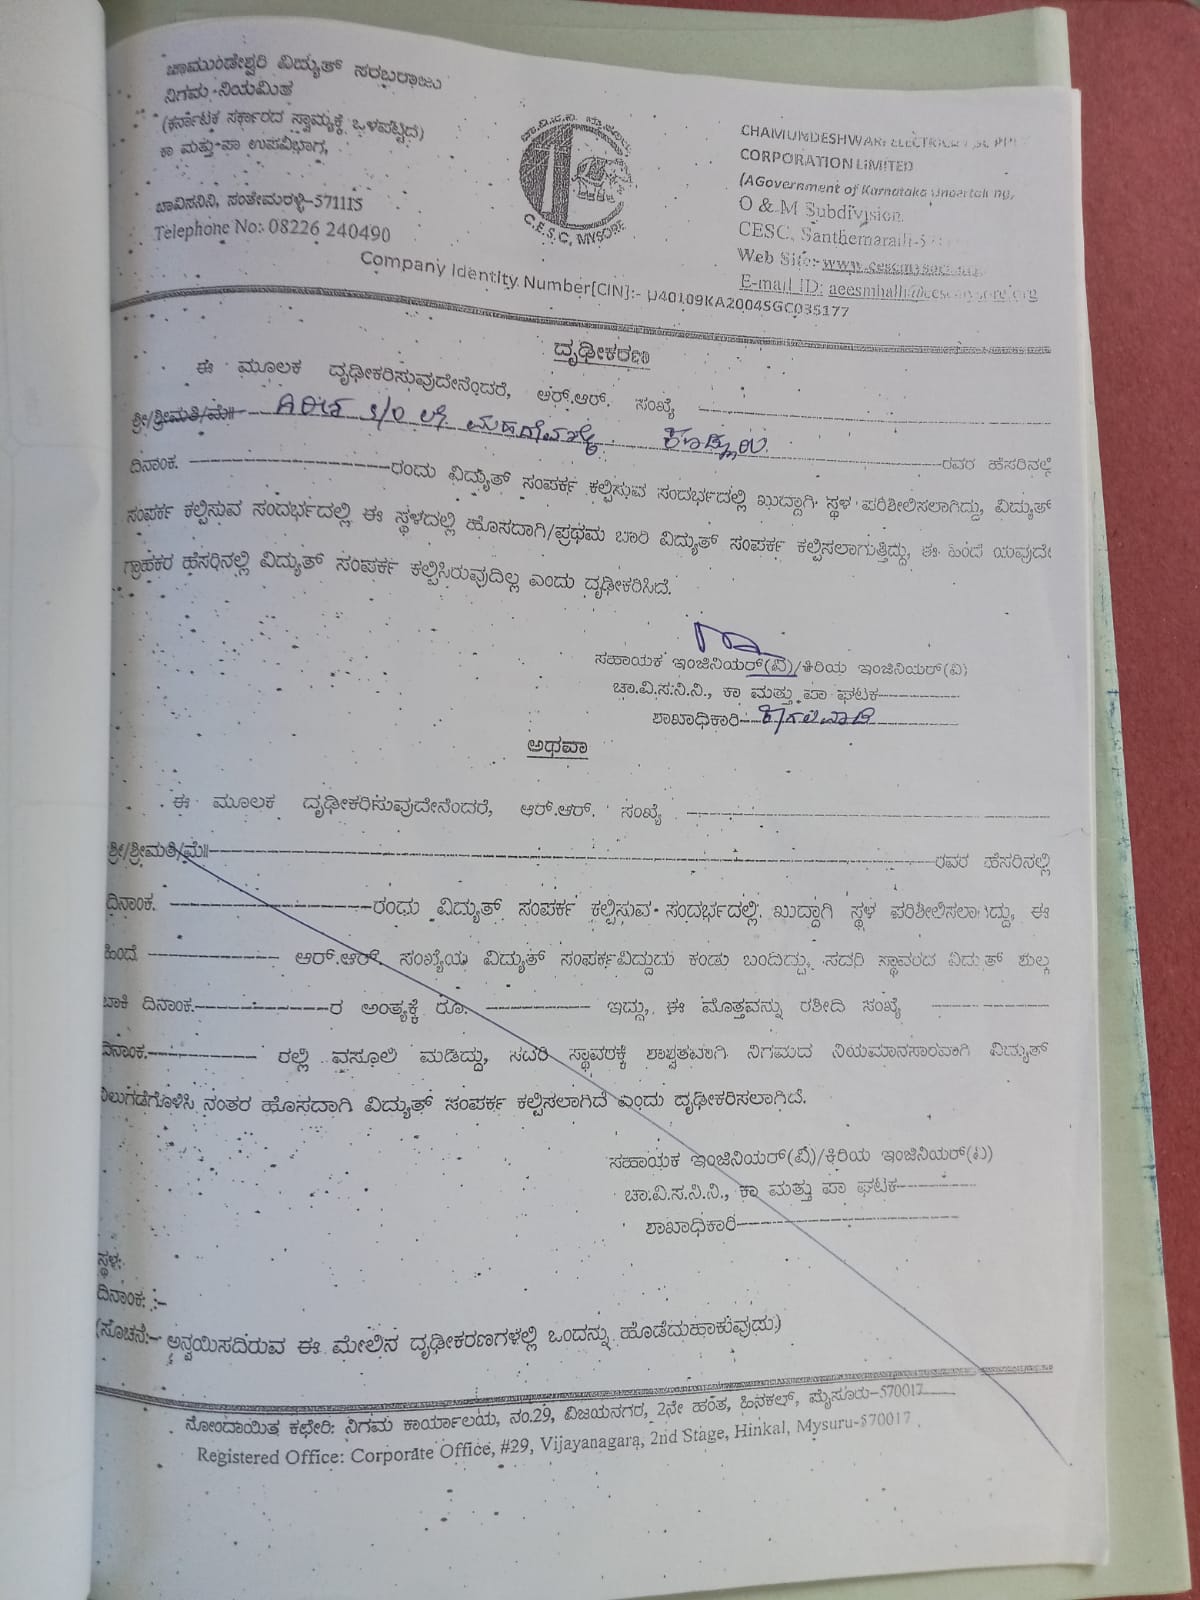 ಚಾಮುಂಡೇಶ್ವರಿ ವಿದ್ಯುತ್ ಸರಬರಾಜು
ನಿಗಮ ನಿಯಮಿತ
(ಕರ್ನಾಟಕ ಸರ್ಕಾರದ ಸ್ವಾಮ್ಯಕ್ಕೆ ಒಳಪಟ್ಟಿದೆ)
ಕಾ ಮತ್ತು ಪಾ ಉಪವಿಭಾಗ,
ಚಾವಿಸನಿನಿ, ಸಂತೇಮರಳ್ಳಿ-571115
Telephone No: 08226 240490
C.E.S.C, MYSORE
CHAMUNDESHWARI ELECTRICITY SUPPLY
CORPORATION LIMITED
(AGovernment of Karnataka Undertaking,
O & M Subdivision,
CESC, Santhemaralli-571
Web Site:- www.cescmysore.org
E-mail ID: aeesmhalli@cescmysore.org
Company Identity Number[CIN]:- U40109KA2004SGC035177
ದೃಢೀಕರಣ
ಈ ಮೂಲಕ ದೃಢೀಕರಿಸುವುದೇನೆಂದರೆ, ಆರ್.ಆರ್. ಸಂಖ್ಯೆ
ಶ್ರೀ/ಶ್ರೀಮತಿ/ಮೆ॥ ಗಿರೀಶ s/o ಲೇ ಮಹದೇವಯ್ಯ ರವರ ಹೆಸರಿನಲ್ಲಿ
ದಿನಾಂಕ. ರಂದು ವಿದ್ಯುತ್ ಸಂಪರ್ಕ ಕಲ್ಪಿಸುವ ಸಂದರ್ಭದಲ್ಲಿ ಖುದ್ದಾಗಿ ಸ್ಥಳ ಪರಿಶೀಲಿಸಲಾಗಿದ್ದು, ವಿದ್ಯುತ್
ಸಂಪರ್ಕ ಕಲ್ಪಿಸುವ ಸಂದರ್ಭದಲ್ಲಿ ಈ ಸ್ಥಳದಲ್ಲಿ ಹೊಸದಾಗಿ/ಪ್ರಥಮ ಬಾರಿ ವಿದ್ಯುತ್ ಸಂಪರ್ಕ ಕಲ್ಪಿಸಲಾಗುತ್ತಿದ್ದು, ಈ ಹಿಂದೆ ಯಾವುದೇ
ಗ್ರಾಹಕರ ಹೆಸರಿನಲ್ಲಿ ವಿದ್ಯುತ್ ಸಂಪರ್ಕ ಕಲ್ಪಿಸಿರುವುದಿಲ್ಲ ಎಂದು ದೃಢೀಕರಿಸಿದೆ.
ಸಹಾಯಕ ಇಂಜಿನಿಯರ್(ವಿ)/ಕಿರಿಯ ಇಂಜಿನಿಯರ್(ವಿ)
ಚಾ.ವಿ.ಸ.ನಿ.ನಿ., ಕಾ ಮತ್ತು ಪಾ ಘಟಕ
ಶಾಖಾಧಿಕಾರಿ ಕಾಗಲವಾಡಿ
ಅಥವಾ
ಈ ಮೂಲಕ ದೃಢೀಕರಿಸುವುದೇನೆಂದರೆ, ಆರ್.ಆರ್. ಸಂಖ್ಯೆ
ಶ್ರೀ/ಶ್ರೀಮತಿ/ಮೆ॥ ರವರ ಹೆಸರಿನಲ್ಲಿ
ದಿನಾಂಕ. ರಂದು ವಿದ್ಯುತ್ ಸಂಪರ್ಕ ಕಲ್ಪಿಸುವ ಸಂದರ್ಭದಲ್ಲಿ ಖುದ್ದಾಗಿ ಸ್ಥಳ ಪರಿಶೀಲಿಸಲಾಗಿದ್ದು, ಈ
ಹಿಂದೆ ಆರ್.ಆರ್. ಸಂಖ್ಯೆಯ ವಿದ್ಯುತ್ ಸಂಪರ್ಕವಿದ್ದುದು ಕಂಡು ಬಂದಿದ್ದು, ಸದರಿ ಸ್ಥಾವರದ ವಿದ್ಯುತ್ ಶುಲ್ಕ
ಬಾಕಿ ದಿನಾಂಕ. ರ ಅಂತ್ಯಕ್ಕೆ ರೂ. ಇದ್ದು, ಈ ಮೊತ್ತವನ್ನು ರಶೀದಿ ಸಂಖ್ಯೆ
ದಿನಾಂಕ. ರಲ್ಲಿ ವಸೂಲಿ ಮಾಡಿದ್ದು, ಸದರಿ ಸ್ಥಾವರಕ್ಕೆ ಶಾಶ್ವತವಾಗಿ ನಿಗಮದ ನಿಯಮಾನುಸಾರವಾಗಿ ವಿದ್ಯುತ್
ನಿಲುಗಡೆಗೊಳಿಸಿ ನಂತರ ಹೊಸದಾಗಿ ವಿದ್ಯುತ್ ಸಂಪರ್ಕ ಕಲ್ಪಿಸಲಾಗಿದೆ ಎಂದು ದೃಢೀಕರಿಸಲಾಗಿದೆ.
ಸಹಾಯಕ ಇಂಜಿನಿಯರ್(ವಿ)/ಕಿರಿಯ ಇಂಜಿನಿಯರ್(ವಿ)
ಚಾ.ವಿ.ಸ.ನಿ.ನಿ., ಕಾ ಮತ್ತು ಪಾ ಘಟಕ
ಶಾಖಾಧಿಕಾರಿ
ಸ್ಥಳ:
ದಿನಾಂಕ: :-
(ಸೂಚನೆ:- ಅನ್ವಯಿಸದಿರುವ ಈ ಮೇಲಿನ ದೃಢೀಕರಣಗಳಲ್ಲಿ ಒಂದನ್ನು ಹೊಡೆದುಹಾಕುವುದು)
ನೋಂದಾಯಿತ ಕಛೇರಿ: ನಿಗಮ ಕಾರ್ಯಾಲಯ, ನಂ.29, ವಿಜಯನಗರ, 2ನೇ ಹಂತ, ಹಿನಕಲ್, ಮೈಸೂರು-570017
Registered Office: Corporate Office, #29, Vijayanagara, 2nd Stage, Hinkal, Mysuru-570017